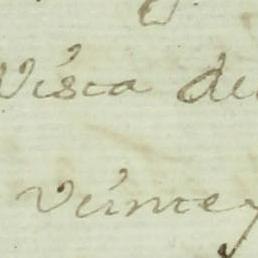 Visca de
veinte y